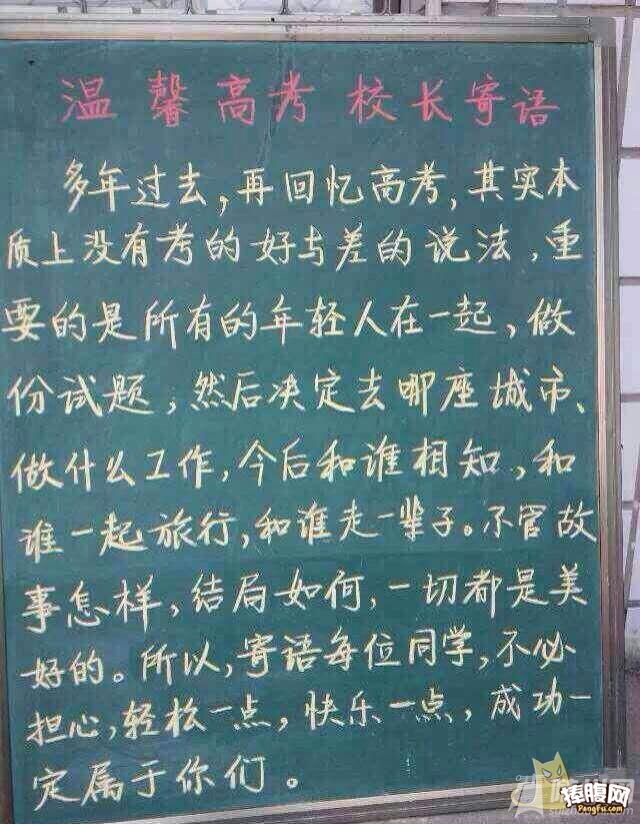 温馨高考 校长寄语
多年过去,再回忆高考,其实本
质上没有考的好与差的说法,重
要的是所有的年轻人在一起,做
份试题,然后决定去哪座城市、
做什么工作,今后和谁相知,和
谁一起旅行,和谁走一辈子。不管故
事怎样,结局如何,一切都是美
好的。所以,寄语每位同学,不必
担心,轻松一点,快乐一点,成功一
定属于你们。
捧腹网
PengFu.com